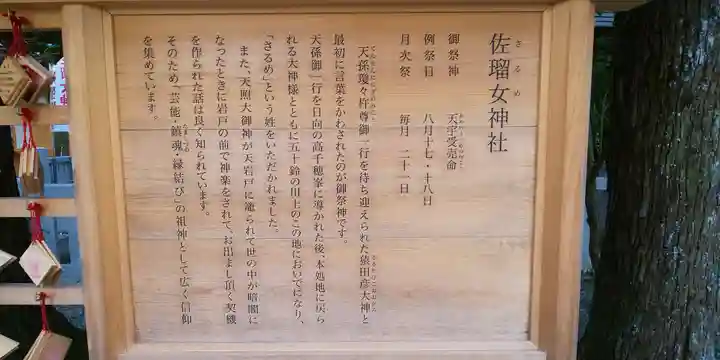 佐瑠女神社
さるめ
御祭神　天宇受売命
例祭日　八月十七・十八日
月次祭　毎月　二十一日
天孫瓊々杵尊御一行を待ち迎えられた猿田彦大神と
最初に言葉をかわされたのが御祭神です。
天孫御一行を日向の高千穂峯に導かれた後、本処地に戻ら
れる大神様とともに五十鈴の川上のこの地においでになり、
「さるめ」という姓をいただかれました。
また、天照大御神が天岩戸に籠られて世の中が暗闇に
なったときに岩戸の前で神楽をされて、お出まし頂く契機
を作られた話は良く知られています。
そのため「芸能・鎮魂・縁結び」の祖神として広く信仰
を集めています。